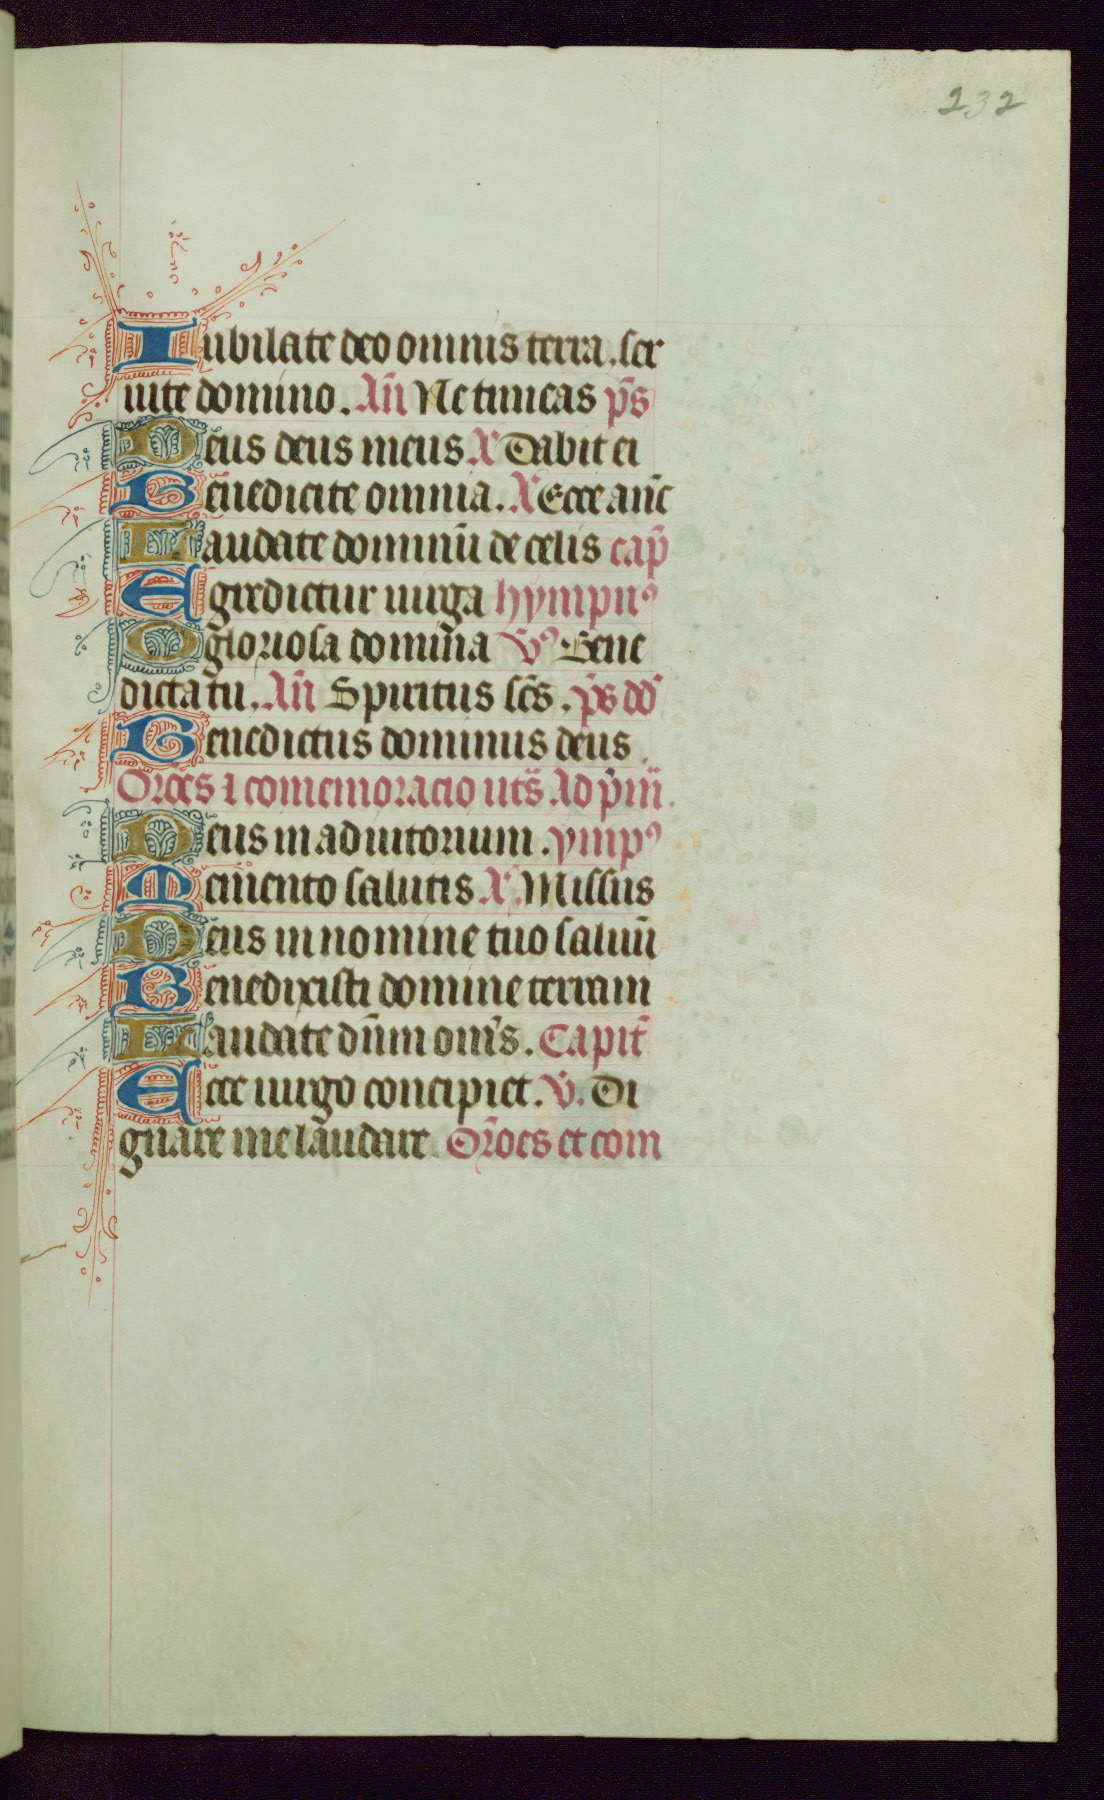 232
Iubilate deo omnis terra, ser
uite domino. An̄ Ne timeas p̄s
Deus deus meus A᷑ Dabit ei
Benedicite omnia. A᷑ Ecce anc̄
Laudate dominū de celis cap̄
Egredietur uirga hympnꝰ
O gloriosa domina Vꝰ Bene
dicta tu. An̄ Spiritus sc̄s. p̄s dd̄
Benedictus dominus deus.
Orōes ⁊ comemoracio ut s̄. Ad p̄m̄.
Deus in adiutorium. ympꝰ
Memento salutis A᷑. Missus
Deus in nomine tuo saluū
Benedixisti domine terram
Laudate dn̄m om̄s. Capit̄
Ecce uirgo concipiet. V̄. Di
gnare me laudare. Orōes et com